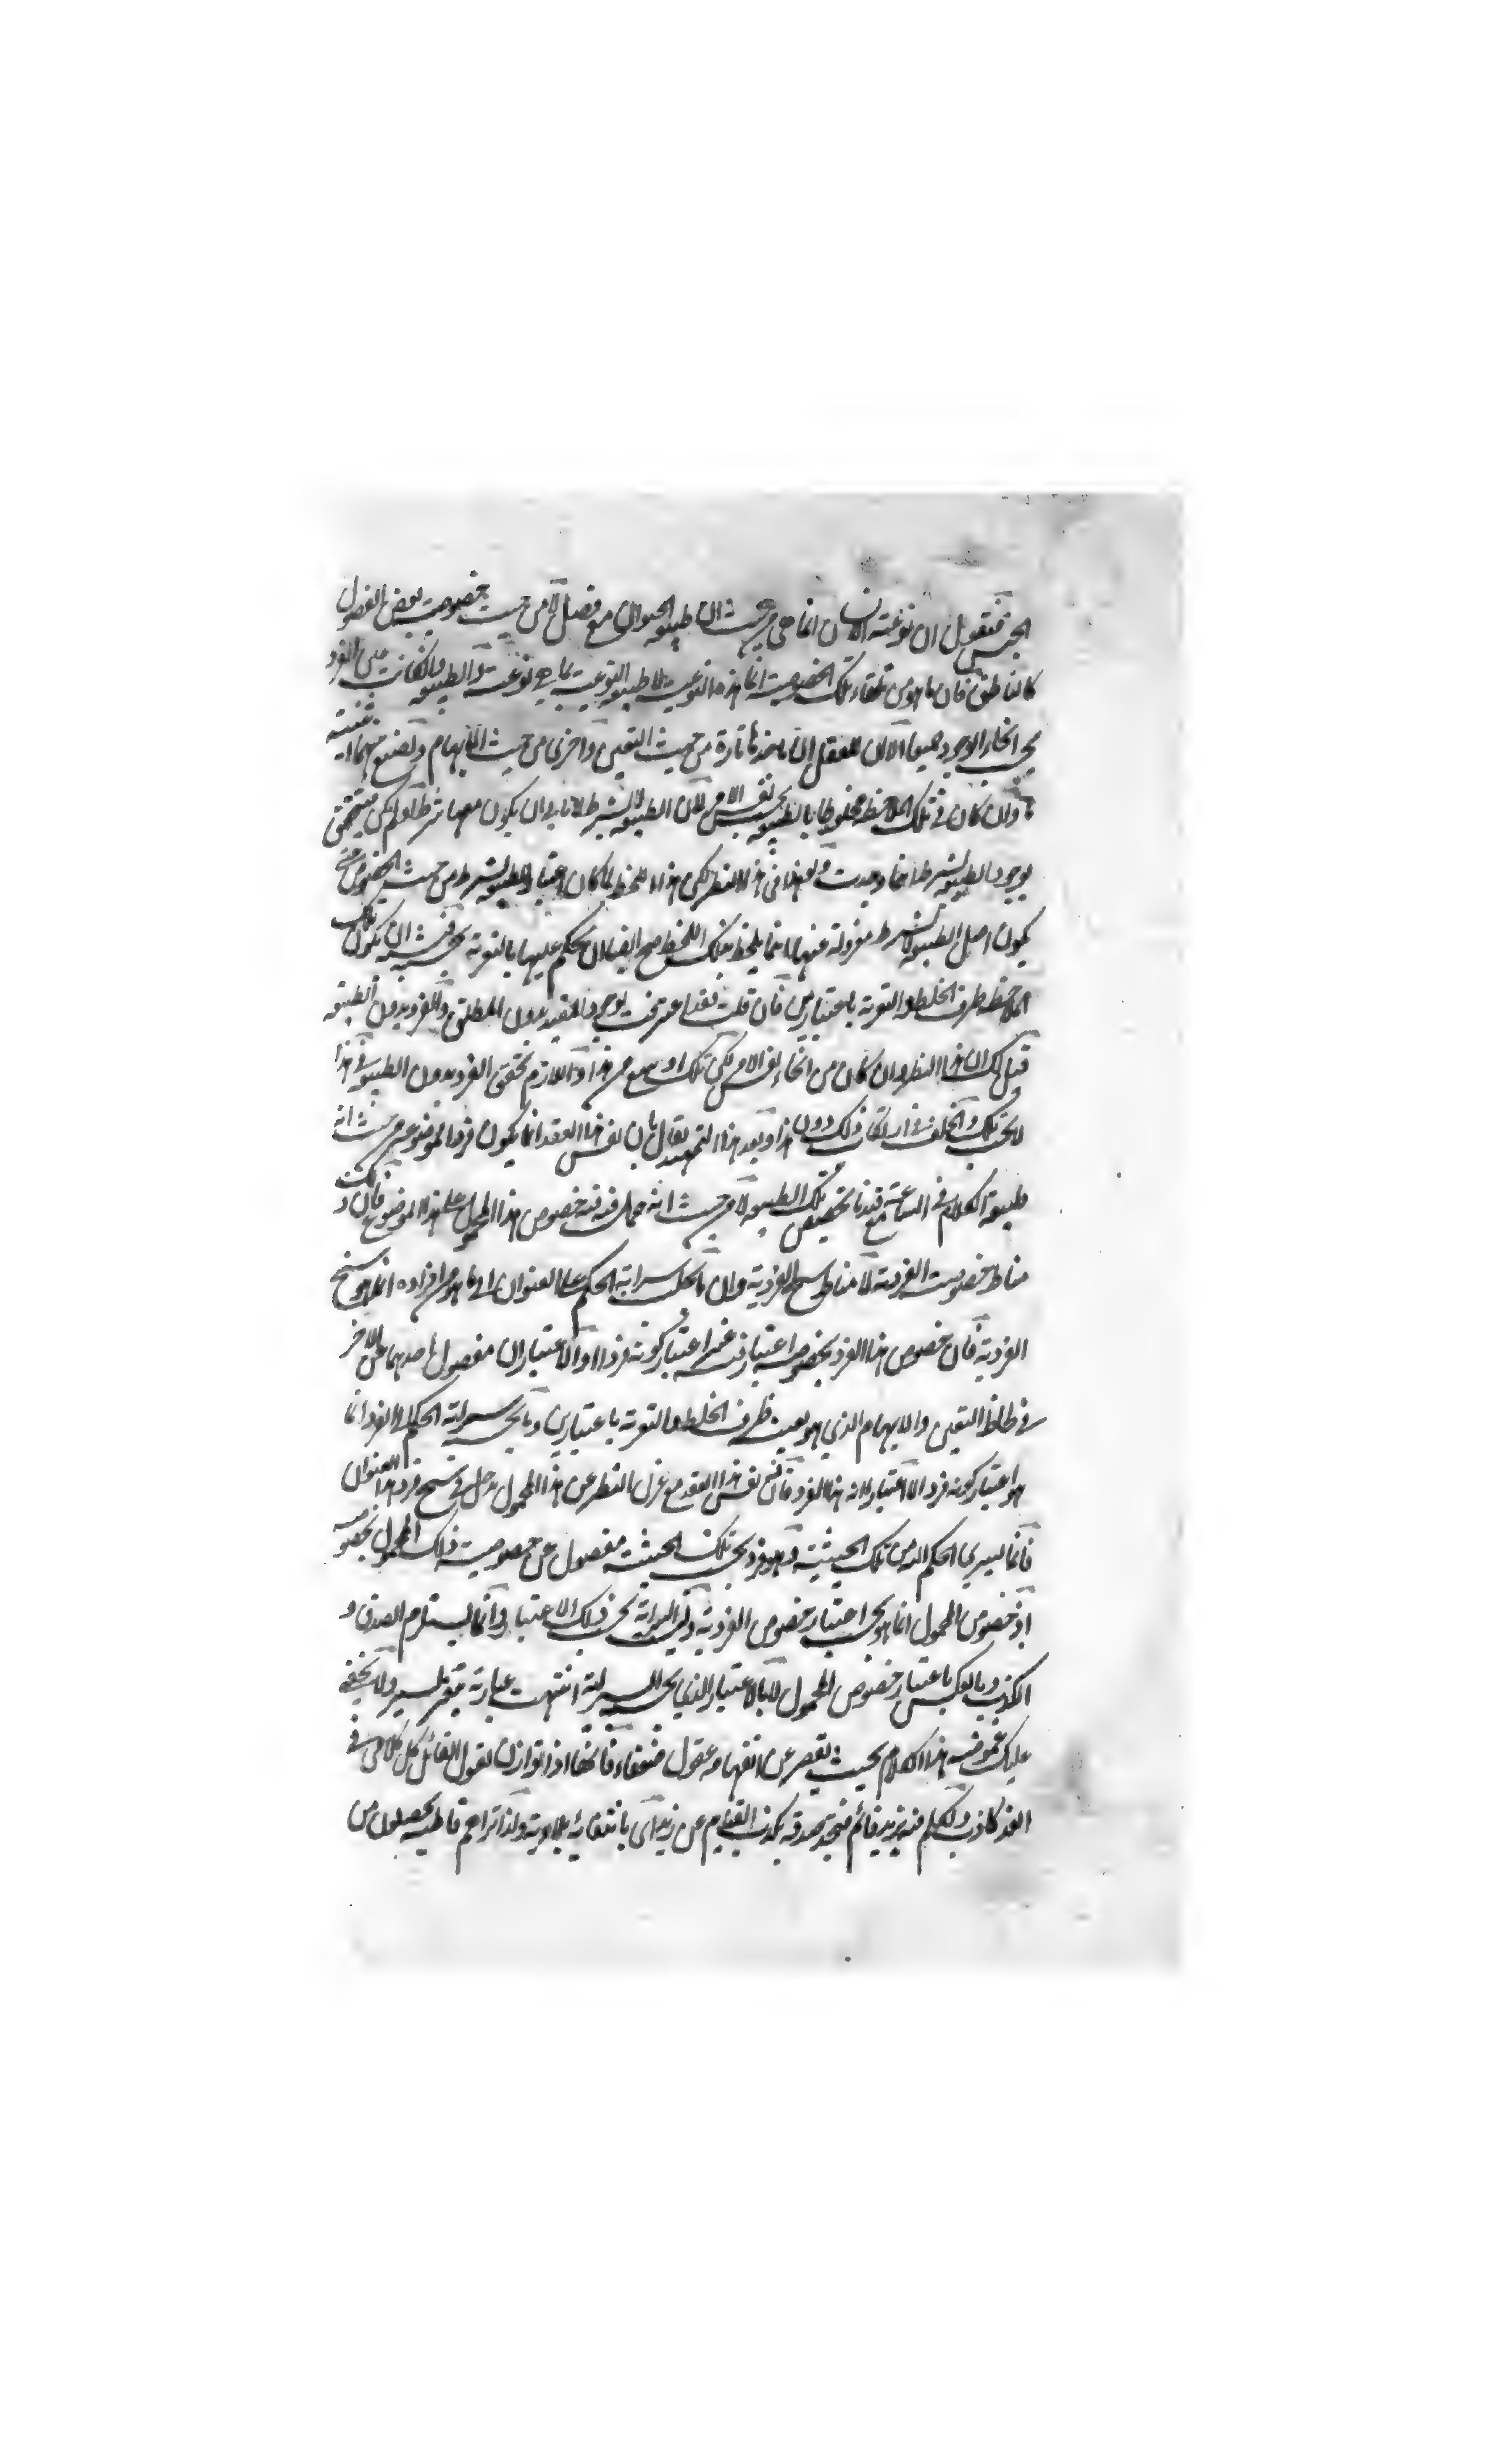 الجنس فنقول ان نوعية الانسان انما هي من حيث ان طبيعة الحيوان مع فصل لا من حيث خصوصية بعض الفصول
كالناطق فان ما هو من تلقاء تلك الخصوصية انما هذه النوعية لا طبيعة النوعية بما هي نوعية والطبيعة وان كانت عين الفرد
في انحاء الوجود جميعا الا ان للعقل ان ياخذها تارة من حيث التعين واخرى من حيث الابهام
وان كان في تلك الملاحظة مخلوطا بالطبيعة بحسب نفس الامر لان الطبيعة لا بشرط لا تابى ان يكون معها شرط او لم يكن
بوجود الطبيعة بشرط انما وجدت هذا النظر لكن هذا اللحظ لما كان اعتبار الطبيعة بشرط من حيث الخصوص حتى
يكون اصل الطبيعة لا بشرط معزولة عنها انما يلحظ بذلك اللحظ صح ايضا ان يحكم عليها بالتعرية بحسبه فيشبه ان يكون تلك
الملاحظة ظرف الخلط والتعرية باعتبارين فان قلت فقد اعترفت بوجود المقيد بدون المطلق والفرد بدون الطبيعة
قيل لك ان هذا النظر وان كان من انحاء نفس الامر لكن تلك اوسع من هذا واللازم تحقق الفرد بدون الطبيعة في هذا
لا بحسب تلك والخلف في ارتكاب ذلك دون هذا وبعد هذا التمهيد يقال بان نفس هذا العقد انما يكون فردا لموضوعه من حيث انه
طبيعة الكلام في الساعة مع قيد تخصيص تلك الطبيعة لا من حيث انه حمل فيه خصوص هذا المحمول على هذا الموضوع فان ذلك
مناط خصوصية الفردية لا مناط سنخ الفردية وان ما بحسبه سراية الحكم على العنوان الى ما هو من افراده انما هو سنخ
الفردية فان خصوص هذا الفرد بخصوصه اعتبار فيه غير اعتبار كونه فردا والاعتباران مفصول احدهما عن الاخر
في لحاظ التعين والابهام الذي هو بعينه ظرف الخلط والتعرية باعتبارين وما بحسبه سراية الحكم الى الفرد انما
هو اعتبار كونه فردا لا اعتبار انه هذا الفرد فاذن نفس هذا العقد مع عزل النظر عن هذا المحمول يدخل في سنخ فرد هذا العنوان
فانما يسري الحكم اليه من تلك الحيثية وهو فرد بحسب تلك الحيثية مفصول عن خصوصية ذلك المحمول بخصوصه
اذ خصوص المحمول انما هو بحسب اعتبار خصوص الفردية وليست السراية بحسب ذلك الاعتبار وانما يستلزم الصدق و
الكذب وبالعكس باعتبار خصوص المحمول لا بالاعتبار الذي بحسبه السراية انتهت عبارته بتغير يسير ولا يخفى
عليك غموضه هذا الكلام بحيث يقصر عن انفهامه عقول ضعفاء فانها اذا توازن بقول القائل كل كلامي في
الغد كاذب ولم يتكلم فيه بزيد قائم فنجد صدقه بكذب القيام عن زيد اي بانتفائه ولذا تراهم قاطبة يحصلون من